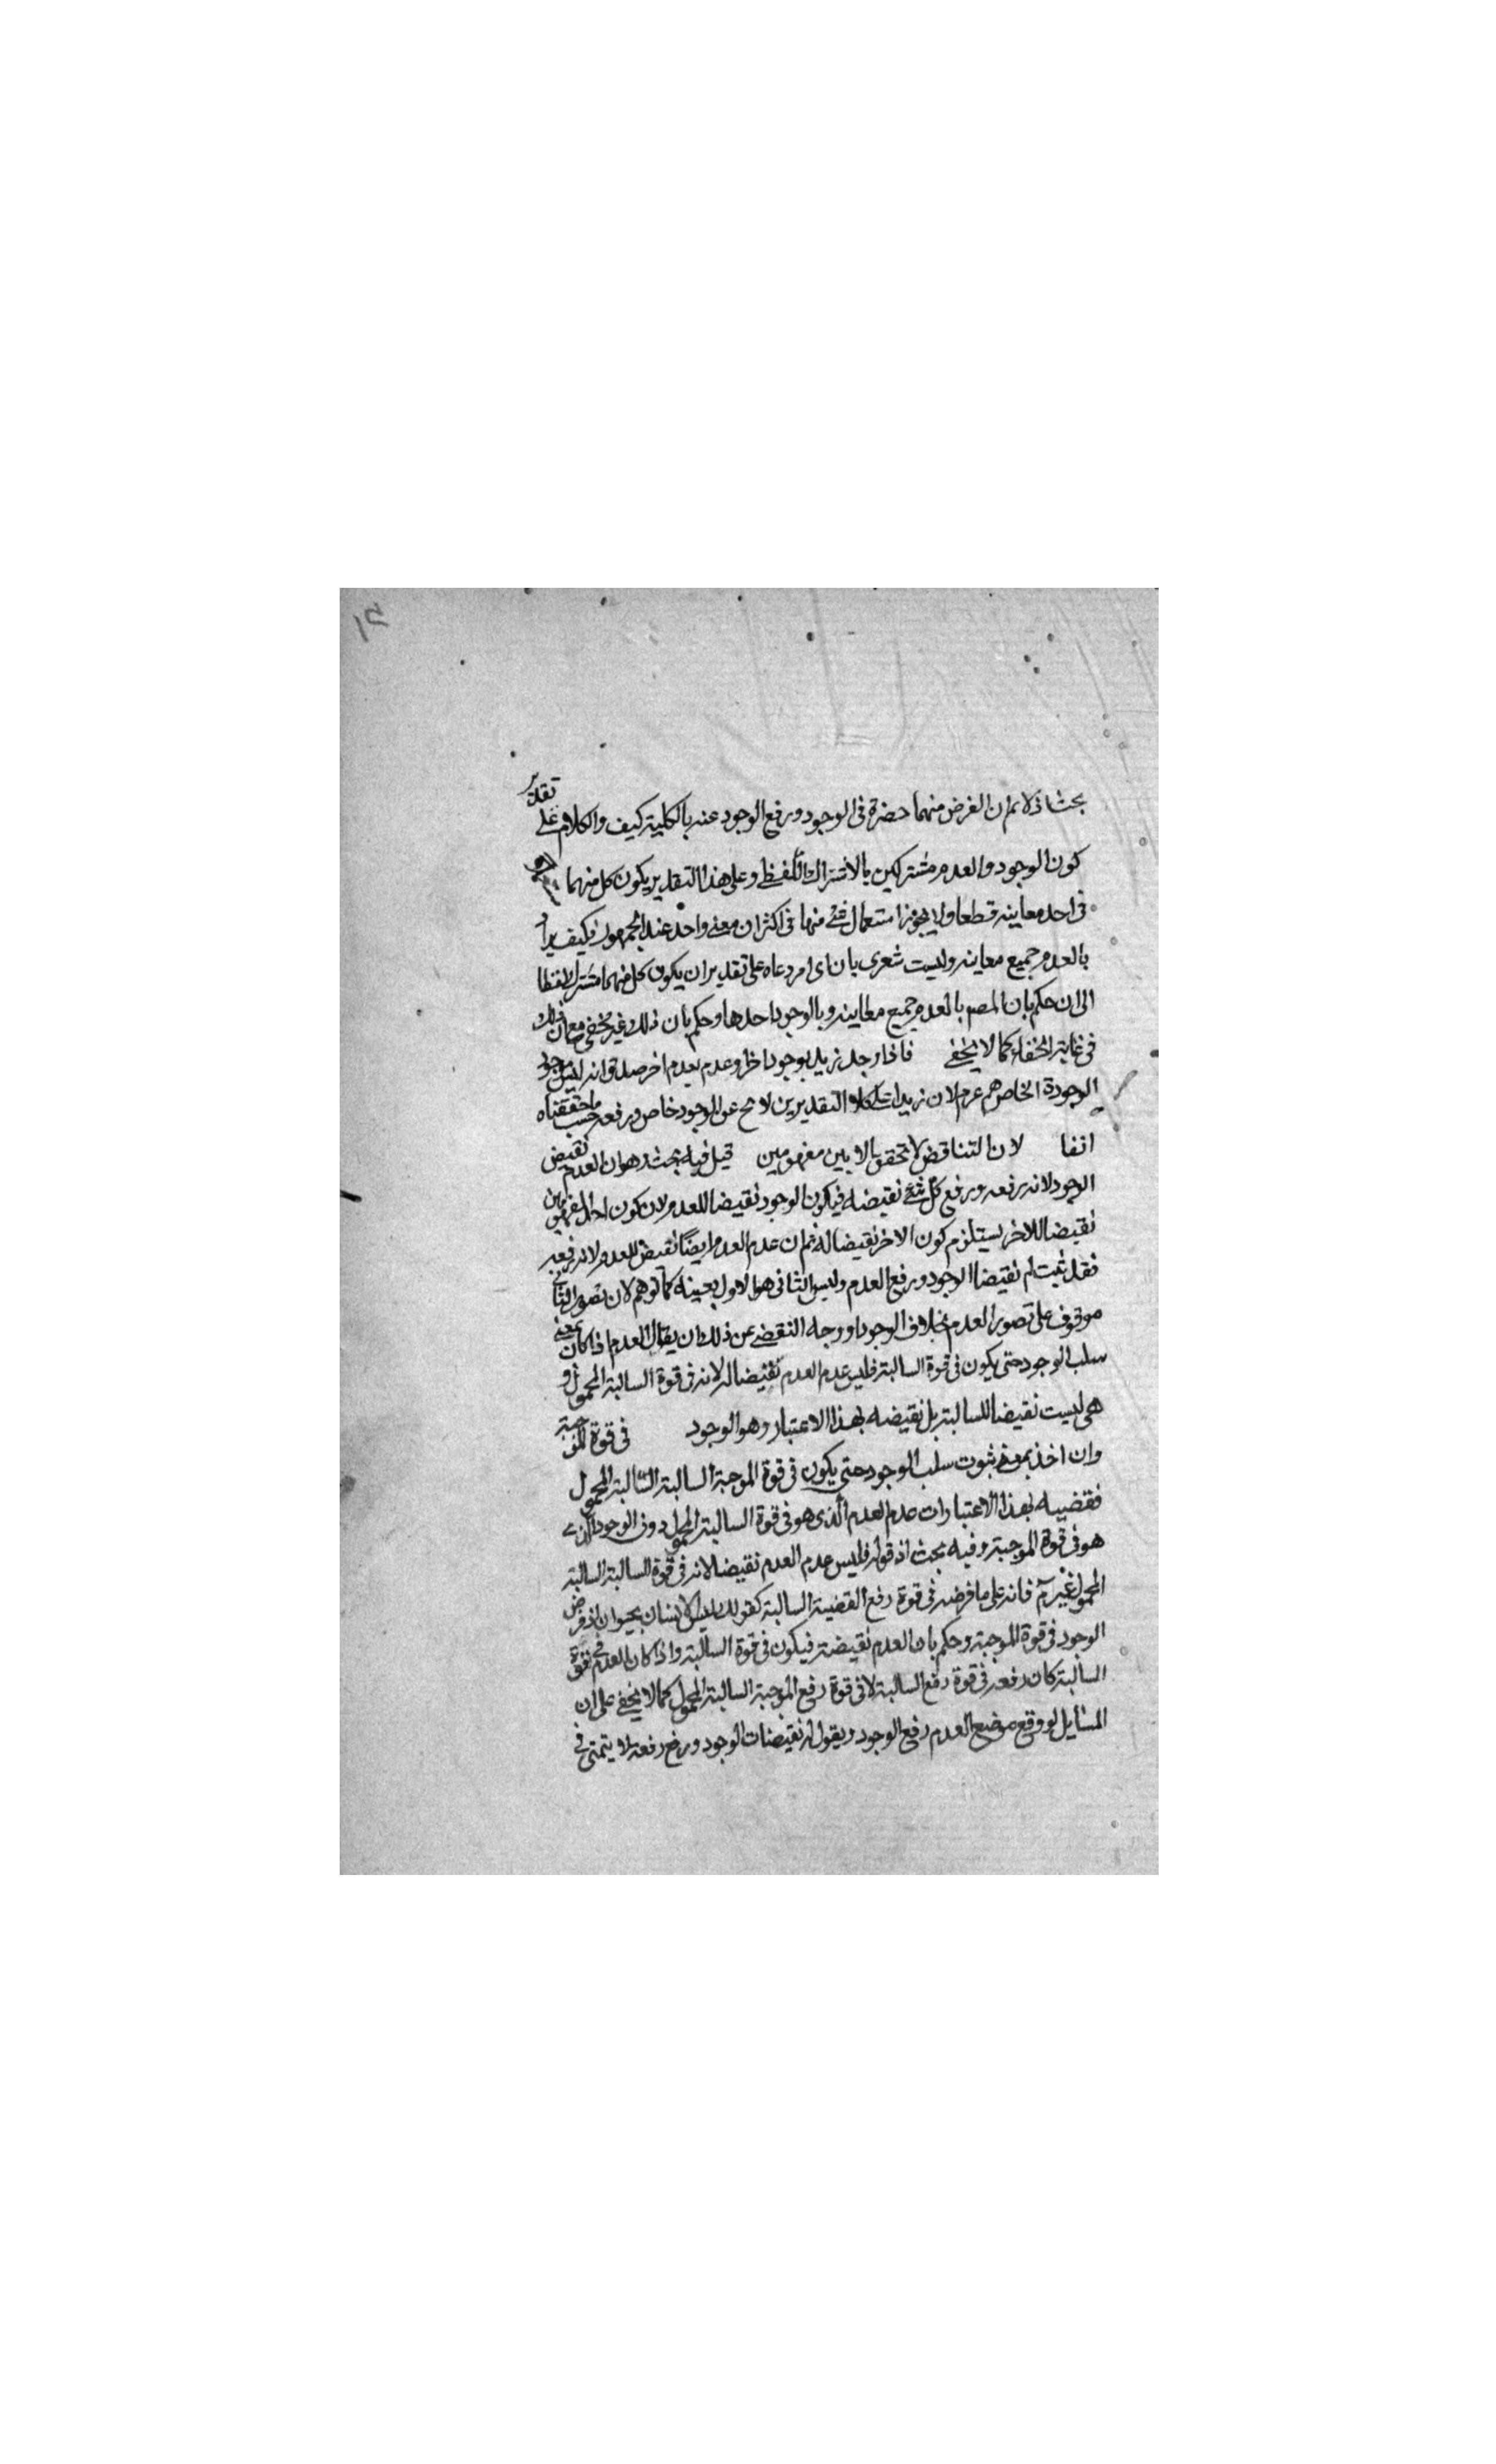 بحث اذ لا نم ان الغرض منهما حضرة فى الوجود ورفع الوجود عنه بالكلية كيف والكلام على تقدير
كون الوجود والعدم مشتركين بالاشتراك اللفظى وعلى هذا التقدير يكون كل منهما
فى احد معاينه قطعا ولا يجوز استعمال شئ منهما فى اكثر ان معنى واحد عند الجمهور وكيف يراد
بالعدم جميع معاينه وليست شعرى بان اى امر دعاه على تقدير ان يكون كل منهما مشتركا لفظا
الى ان حكم بان المصم بالعدم جميع معاينه وبالوجود احدها وحكم بان ذلك غير مخفى مع ان ذلك
فى غاية الخفاء كما لا يخفى فاذا وجد زيد بوجود اخر او عدم بعدم اخر صدق انه ليس بموجود
الوجودة الخاص هم عرم لان زيدا على كلا التقديرين لا يخ عن الوجود خاص ورفعه حسب ما حققناه
انفا لان التناقض لا تحقق الا بين مفهومين قيل فيه بحث وهو ان العدم نقيض
الوجود لانه رفعه ورفع كل شئ نقيضه فيكون الوجود نقيضا للعدم لان كون احد المفهومين
نقيضا للاخر يستلزم كون الاخر نقيضا له ثم ان عدم العدم ايضا نقيض للعدم لانه رفعه
فقد ثبت له نقيضا الوجود ورفع العدم وليس الثانى هو الاول بعينه كما توهم لان تصور الثانى
موقوف على تصور العدم بخلاف الوجود ووجه التفضى عن ذلك ان يقال العدم اذا كان بمعنى
سلب الوجود حتى يكون فى قوة السالبة فليس عدم العدم نقيضا له لانه فى قوة السالبة المحمول و
هى ليست نقيضا للسالبة بل نقيضه بهذا الاعتبار وهو الوجود فى قوة الموجبة
وان اخذ بمعنى ثبوت سلب الوجود حتى يكون فى قوة الموجبة السالبة السالبة المحمول
فقضيه بهذا الاعتبارات عدم العدم الذى هو فى قوة السالبة المحمول دون الوجود الذى
هو فى قوة الموجبة وفيه بحث اذ قوله فليس عدم العدم نقيضا لانه فى قوة السالبة السالبة
المحمول غير م فانه على ما فرضه فى قوة رفع القضية السالبة كقولك ليس الانسان بحيوان اذ فرض
الوجود فى قوة الموجبة وحكم بان العدم نقيضه فيكون فى قوة السالبة واذا كان العدم فى قوة
السالبة كان رفعه فى قوة رفع السالبة لا فى قوة رفع الموجبة السالبة المحمول كما لا يخفى على ان
المسايل لو وقع موضع العدم رفع الوجود ويقول له نقيضات الوجود ورفع رفعه لا يتمشى فى